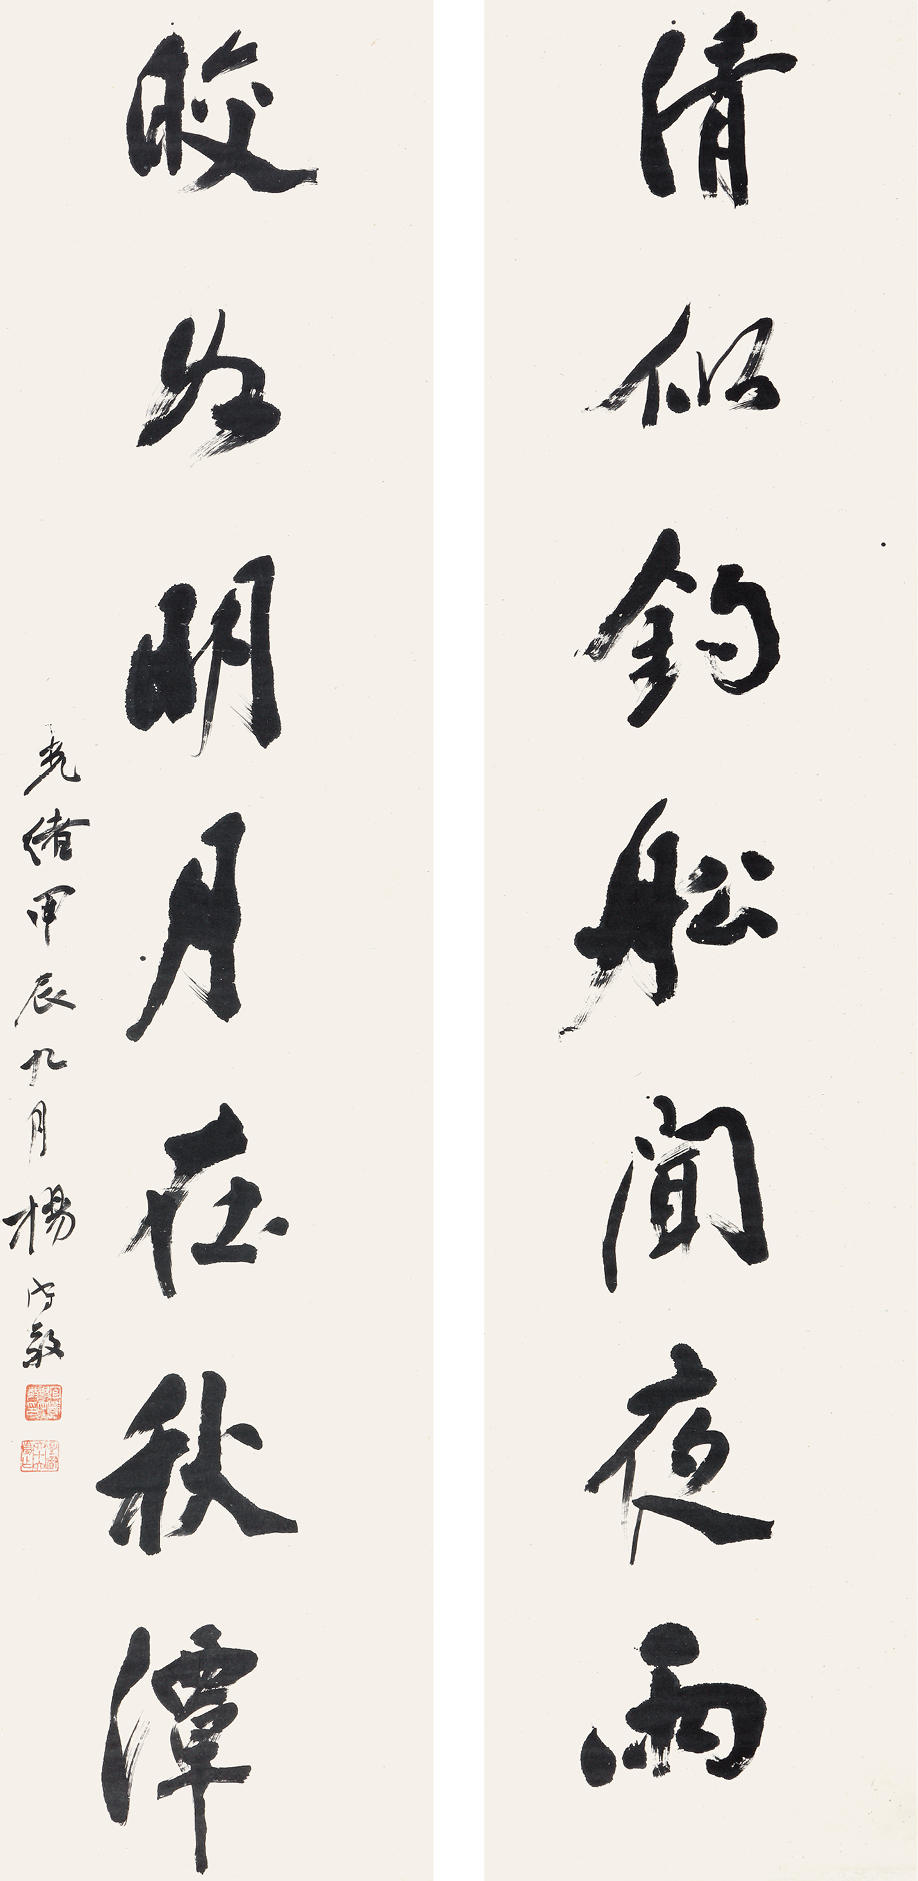 清似釣舩聞夜雨
皎如明月在秋潭
光緒甲辰九月楊守敬